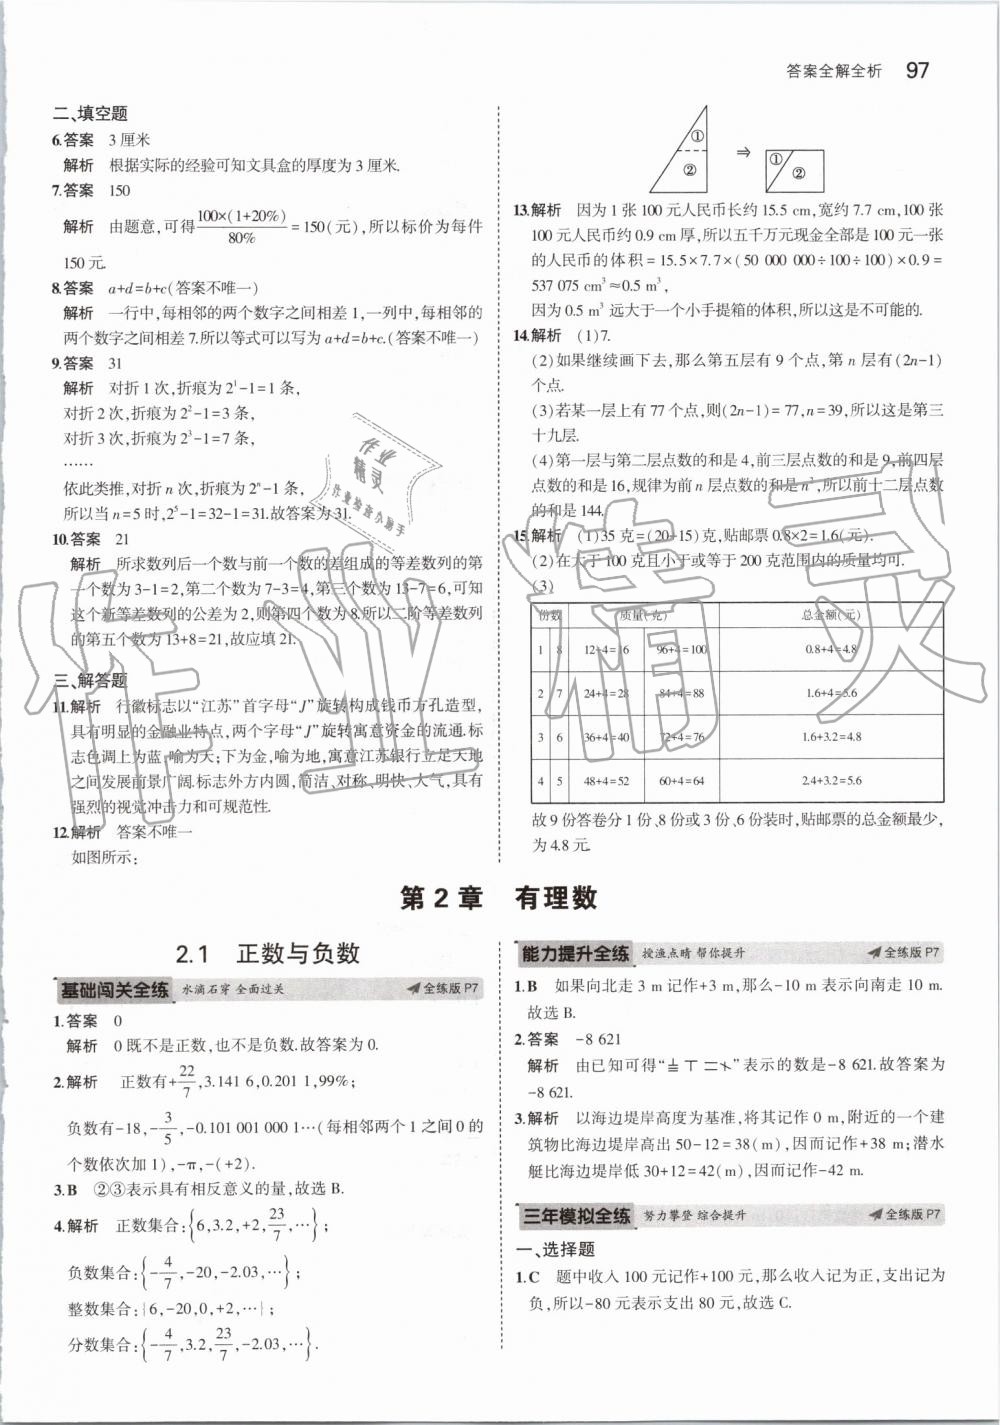 答案全解全析 97
二、填空题
6.答案 3厘米
解析 根据实际的经验可知文具盒的厚度为3厘米.
7.答案 150
解析 由题意,可得100×(1+20%)/80%=150(元),所以标价为每件
150元.
8.答案 a+d=b+c(答案不唯一)
解析 一行中,每相邻的两个数字之间相差1,一列中,每相邻的
两个数字之间相差7.所以等式可以写为a+d=b+c.(答案不唯一)
9.答案 31
解析 对折1次,折痕为2¹-1=1条,
对折2次,折痕为2²-1=3条,
对折3次,折痕为2³-1=7条,
……
依此类推,对折n次,折痕为2ⁿ-1条,
所以当n=5时,2⁵-1=32-1=31.故答案为31.
10.答案 21
解析 所求数列后一个数与前一个数的差组成的等差数列的第
一个数为3-1=2,第二个数为7-3=4,第三个数为13-7=6,可知
这个新等差数列的公差为2,则第四个数为8.所以二阶等差数列
的第五个数为13+8=21,故应填21.
三、解答题
11.解析 行徽标志以“江苏”首字母“J”旋转构成钱币方孔造型,
具有明显的金融业特点,两个字母“J”旋转寓意资金的流通.标
志色调上为蓝,喻为天;下为金,喻为地,寓意江苏银行立足天地
之间发展前景广阔.标志外方内圆,简洁、对称、明快、大气,具有
强烈的视觉冲击力和可规范性.
12.解析 答案不唯一
如图所示:
① ② ⇒ ① ②
13.解析 因为1张100元人民币长约15.5 cm,宽约7.7 cm,100张
100元人民币约0.9 cm厚,所以五千万元现金全部是100元一张
的人民币的体积=15.5×7.7×(50 000 000÷100÷100)×0.9=
537 075 cm³≈0.5 m³,
因为0.5 m³远大于一个小手提箱的体积,所以这是不可能的.
14.解析 (1)7.
(2)如果继续画下去,那么第五层有9个点,第n层有(2n-1)
个点.
(3)若某一层上有77个点,则(2n-1)=77,n=39,所以这是第三
十九层.
(4)第一层与第二层点数的和是4,前三层点数的和是9,前四层
点数的和是16,规律为前n层点数的和是n²,所以前十二层点数
的和是144.
15.解析 (1)35克=(20+15)克,贴邮票0.8×2=1.6(元).
(2)在大于100克且小于或等于200克范围内的质量均可.
(3)
份数 质量(克) 总金额(元)
1 8 12+4=16 96+4=100 0.8+4=4.8
2 7 24+4=28 84+4=88 1.6+4=5.6
3 6 36+4=40 72+4=76 1.6+3.2=4.8
4 5 48+4=52 60+4=64 2.4+3.2=5.6
故9份答卷分1份、8份或3份、6份装时,贴邮票的总金额最少,
为4.8元.
第2章 有理数
2.1 正数与负数
基础闯关全练 水滴石穿 全面过关 全练版P7
1.答案 0
解析 0既不是正数,也不是负数.故答案为0.
2.解析 正数有+22/7,3.141 6,0.201 1,99%;
负数有-18,-3/5,-0.101 001 000 1…(每相邻两个1之间0的
个数依次加1),-π,-(+2).
3.B ②③表示具有相反意义的量,故选B.
4.解析 正数集合:{6,3.2,+2,23/7,…};
负数集合:{-4/7,-20,-2.03,…};
整数集合:{6,-20,0,+2,…};
分数集合:{-4/7,3.2,23/7,-2.03,…}.
能力提升全练 授渔点睛 帮你提升 全练版P7
1.B 如果向北走3 m记作+3 m,那么-10 m表示向南走10 m.
故选B.
2.答案 -8 621
解析 由已知可得“ ”表示的数是-8 621.故答案为
-8 621.
3.解析 以海边堤岸高度为基准,将其记作0 m,附近的一个建
筑物比海边堤岸高出50-12=38(m),因而记作+38 m;潜水
艇比海边堤岸低30+12=42(m),因而记作-42 m.
三年模拟全练 努力攀登 综合提升 全练版P7
一、选择题
1.C 题中收入100元记作+100元,那么收入记为正,支出记为
负,所以-80元表示支出80元,故选C.
作业精灵
作业
精灵
作业检查小助手